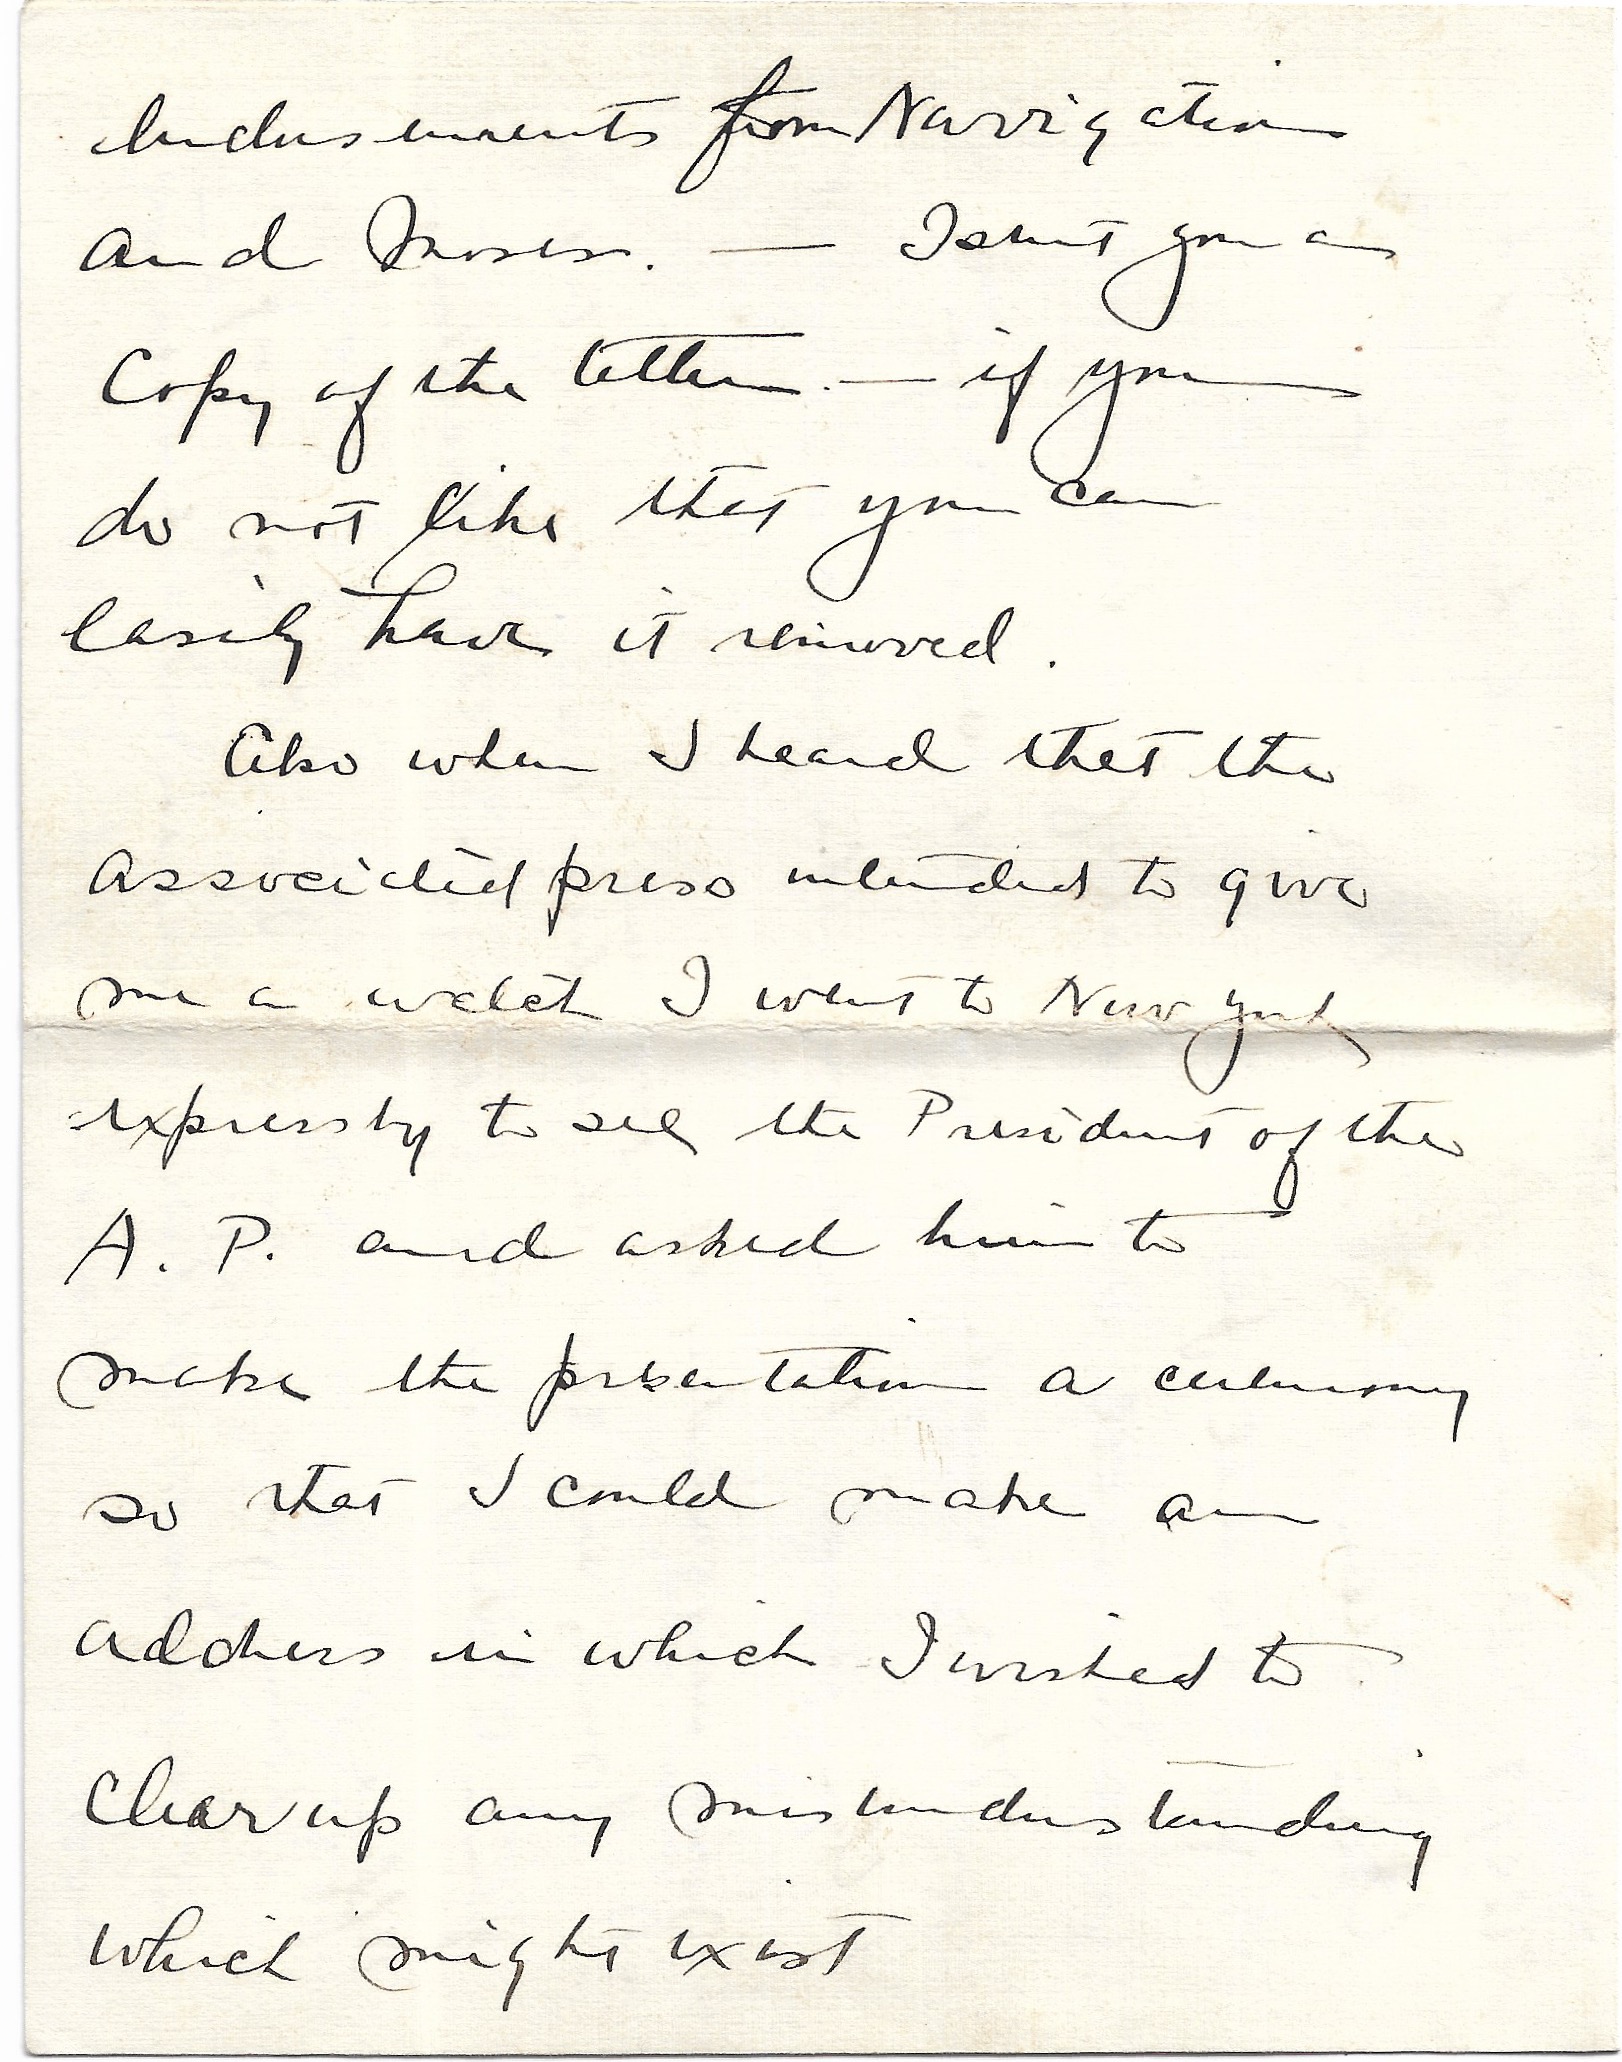 Indorsements from Navigation
and Moses. — I sent you a
Copy of the letter. — if you
do not like that you can
easily have it removed.
Also when I heard that the
associated press intended to give
me a watch I went to New York
expressly to see the President of the
A. P. and asked him to
make the presentation a ceremony
so that I could make an
address in which I wished to
Clear up any misunderstanding
which might exist